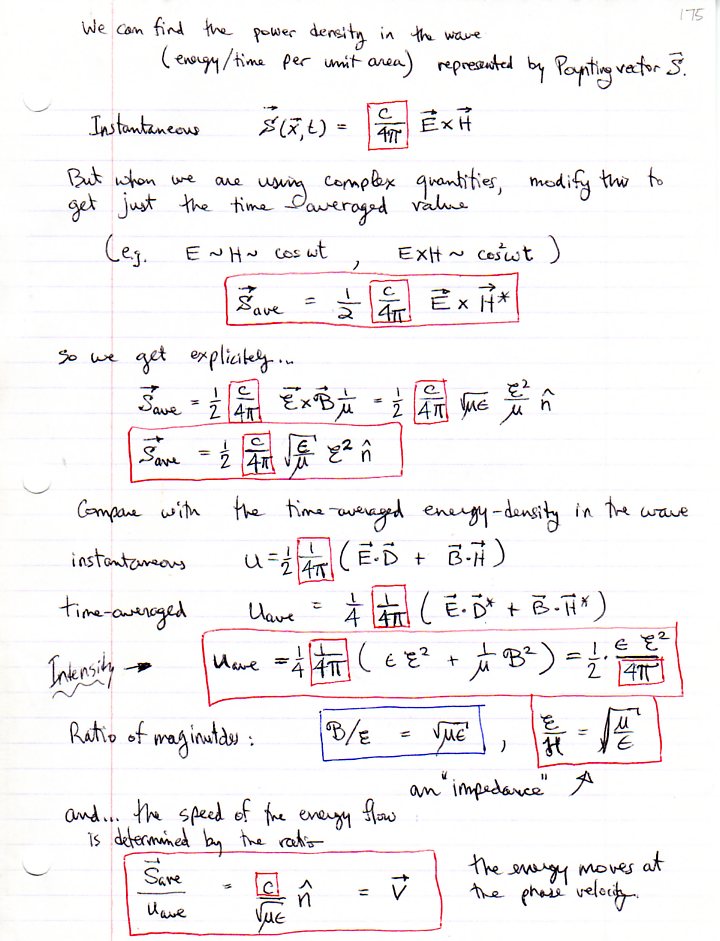 175
We can find the power density in the wave
(energy/time per unit area) represented by Poynting vector S⃗.
Instantaneous S⃗(x⃗,t) = c/4π E⃗ × H⃗
But when we are using complex quantities, modify this to
get just the time averaged value
(e.g. E ~ H ~ cos ωt , E×H ~ cos²ωt )
S⃗ave = 1/2 c/4π E⃗ × H⃗*
So we get explicitely...
S⃗ave = 1/2 c/4π ℰ⃗×ℬ⃗ 1/μ = 1/2 c/4π √με ℰ²/μ n̂
S⃗ave = 1/2 c/4π √(ε/μ) ℰ² n̂
Compare with the time-averaged energy-density in the wave
instantaneous u = 1/2 1/4π ( E⃗·D⃗ + B⃗·H⃗ )
time-averaged uave = 1/4 1/4π ( E⃗·D⃗* + B⃗·H⃗* )
Intensity → uave = 1/4 1/4π ( ε ℰ² + 1/μ ℬ² ) = 1/2 · ε ℰ²/4π
Ratio of maginutdes : ℬ/ℰ = √με , ℰ/ℋ = √(μ/ε)
an "impedance" ↗
and... the speed of the energy flow
is determined by the ratio
S⃗ave/uave = c/√με n̂ = v⃗
the energy moves at
the phase velocity.